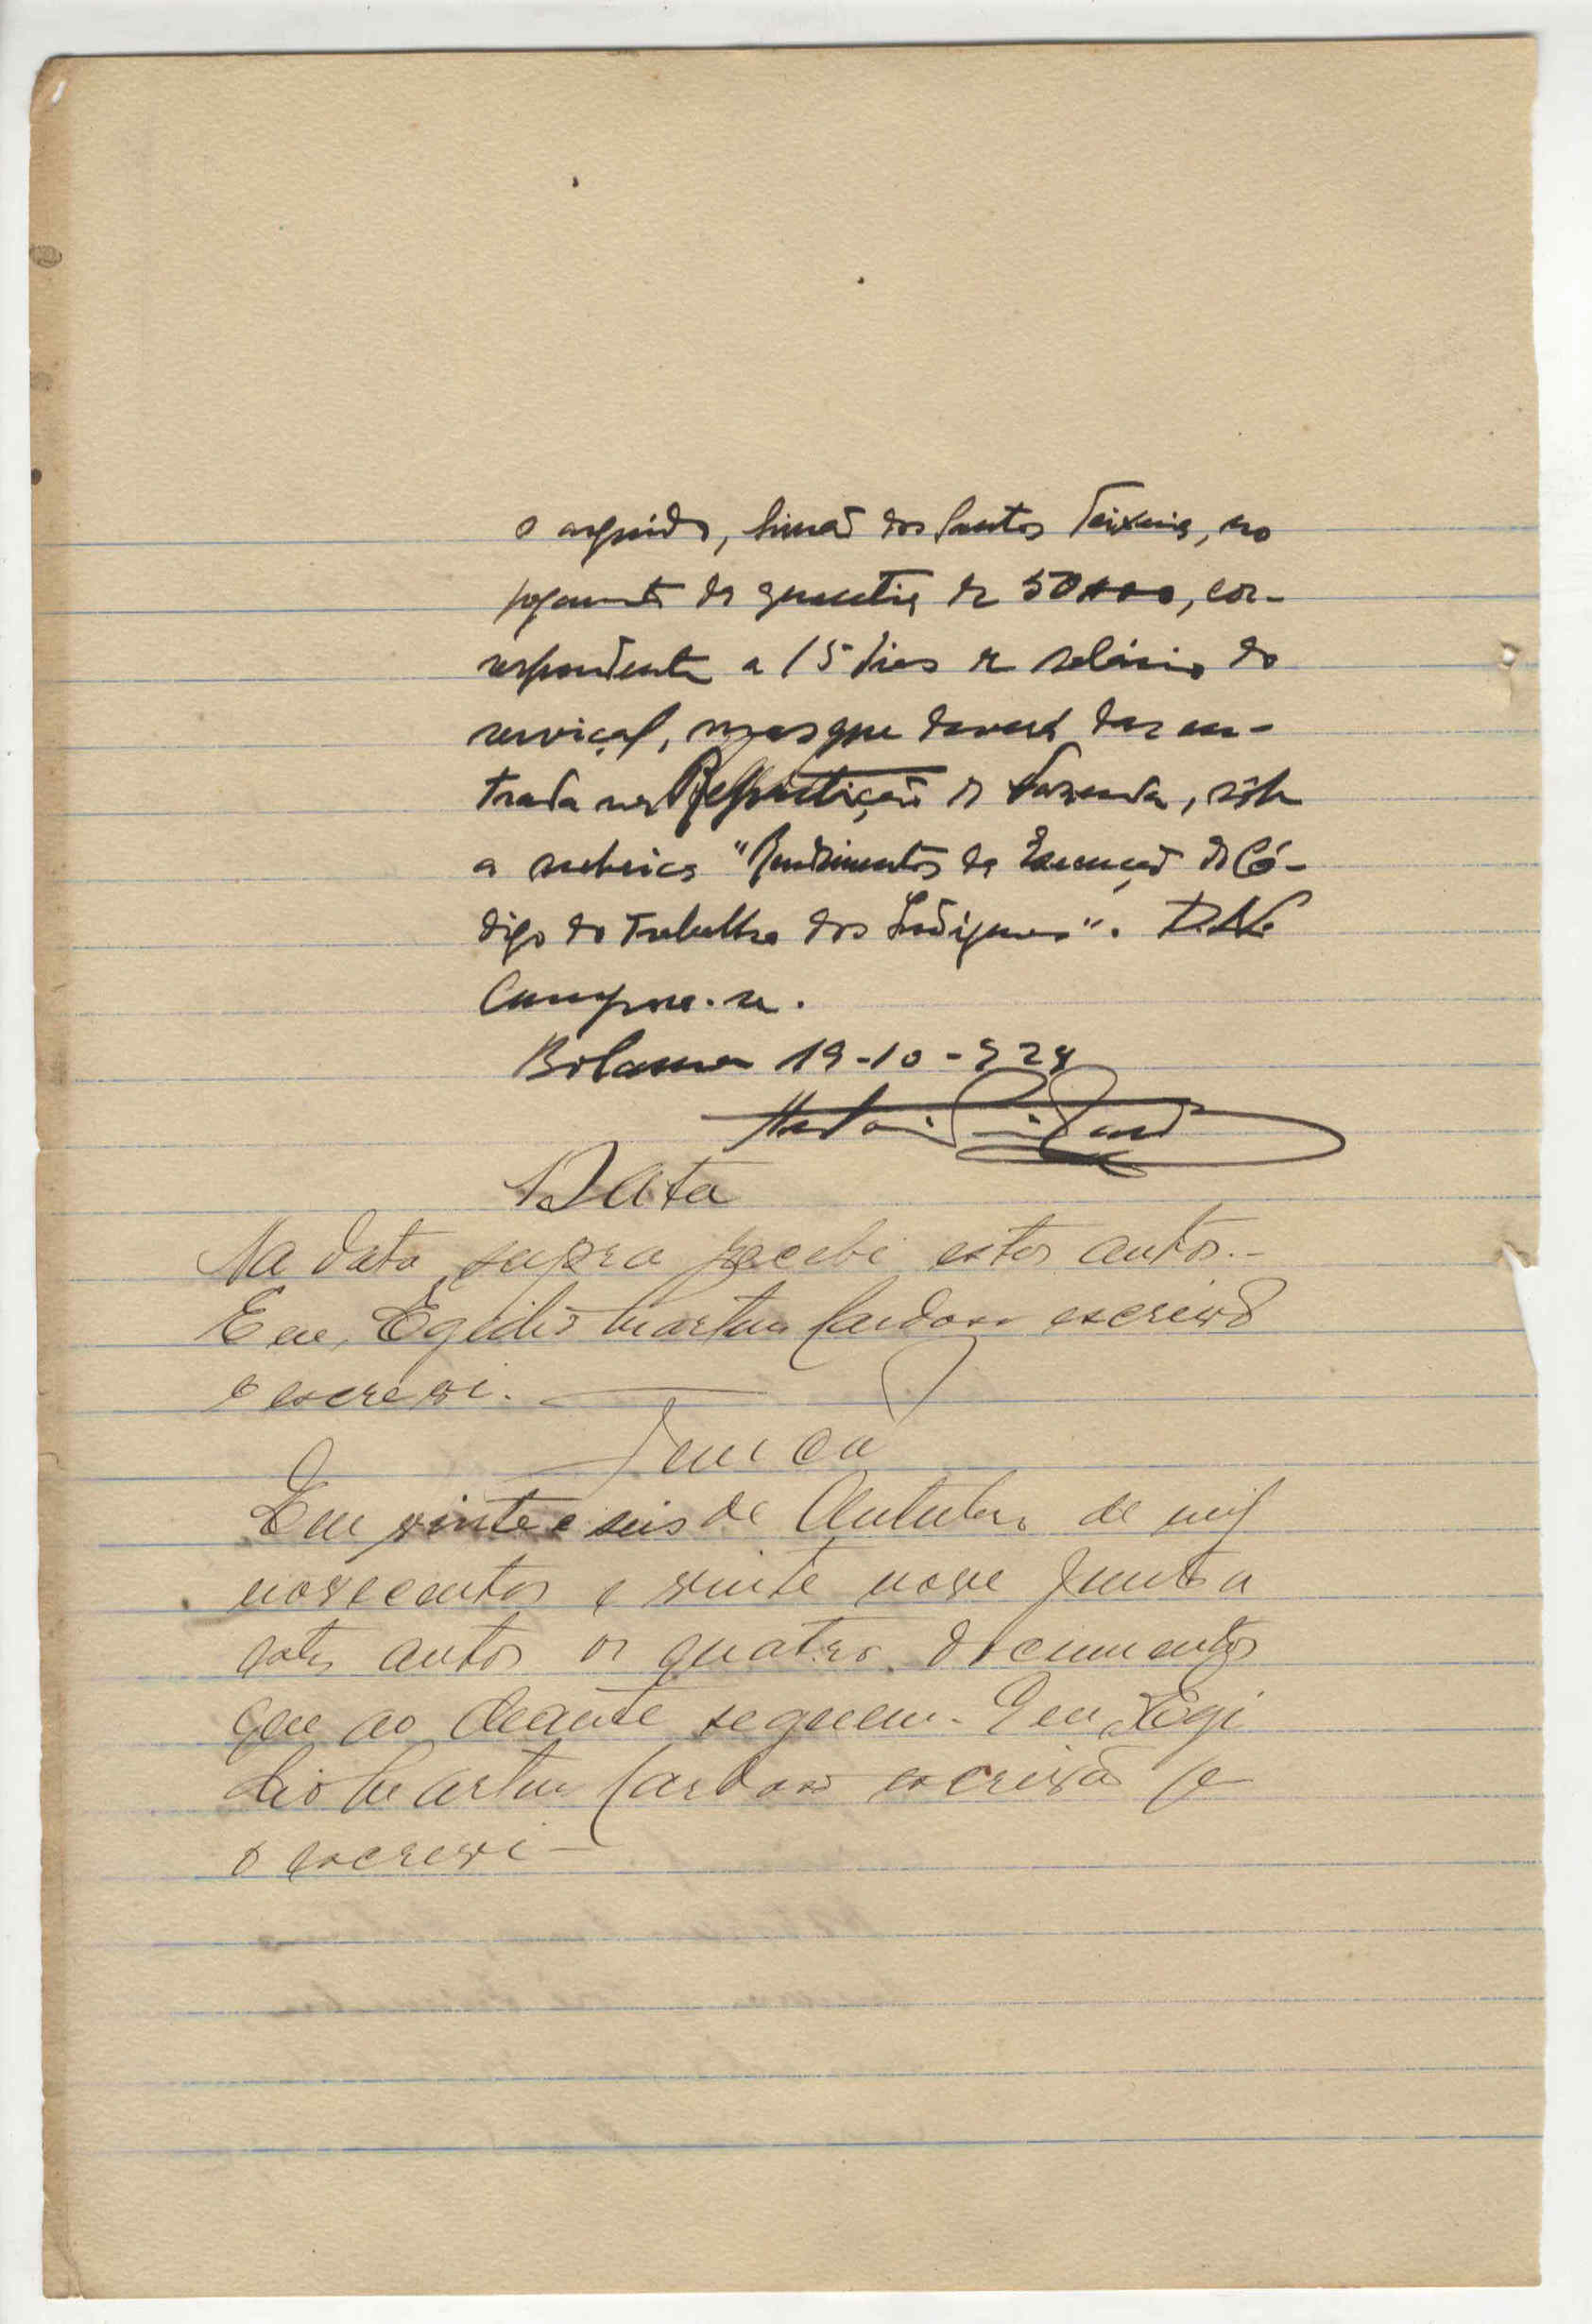 o arguido, Simão dos Santos Teixeira, no
pagamento da quantia de 50$00, cor-
respondente a 15 dias de salário do
serviçal, mas que deverá dar en-
trada na Repartição de Fazenda, sôb
a rubrica "Rendimentos da Execução do Có-
digo do Trabalho dos Indígenas".
Cumpra-se.
Bolama 19-10-929
Data
Na data supra recebi estes autos.-
E eu, Egidio Martins Cardoso escrivão
o escrevi.
Juncão
Em vinte e seis de Outubro de mil
novecentos e vinte nove junto a
estes autos os quatro documentos
que ao deante seguem. E eu Egi
dio Martins Cardoso escrivão
o escrevi